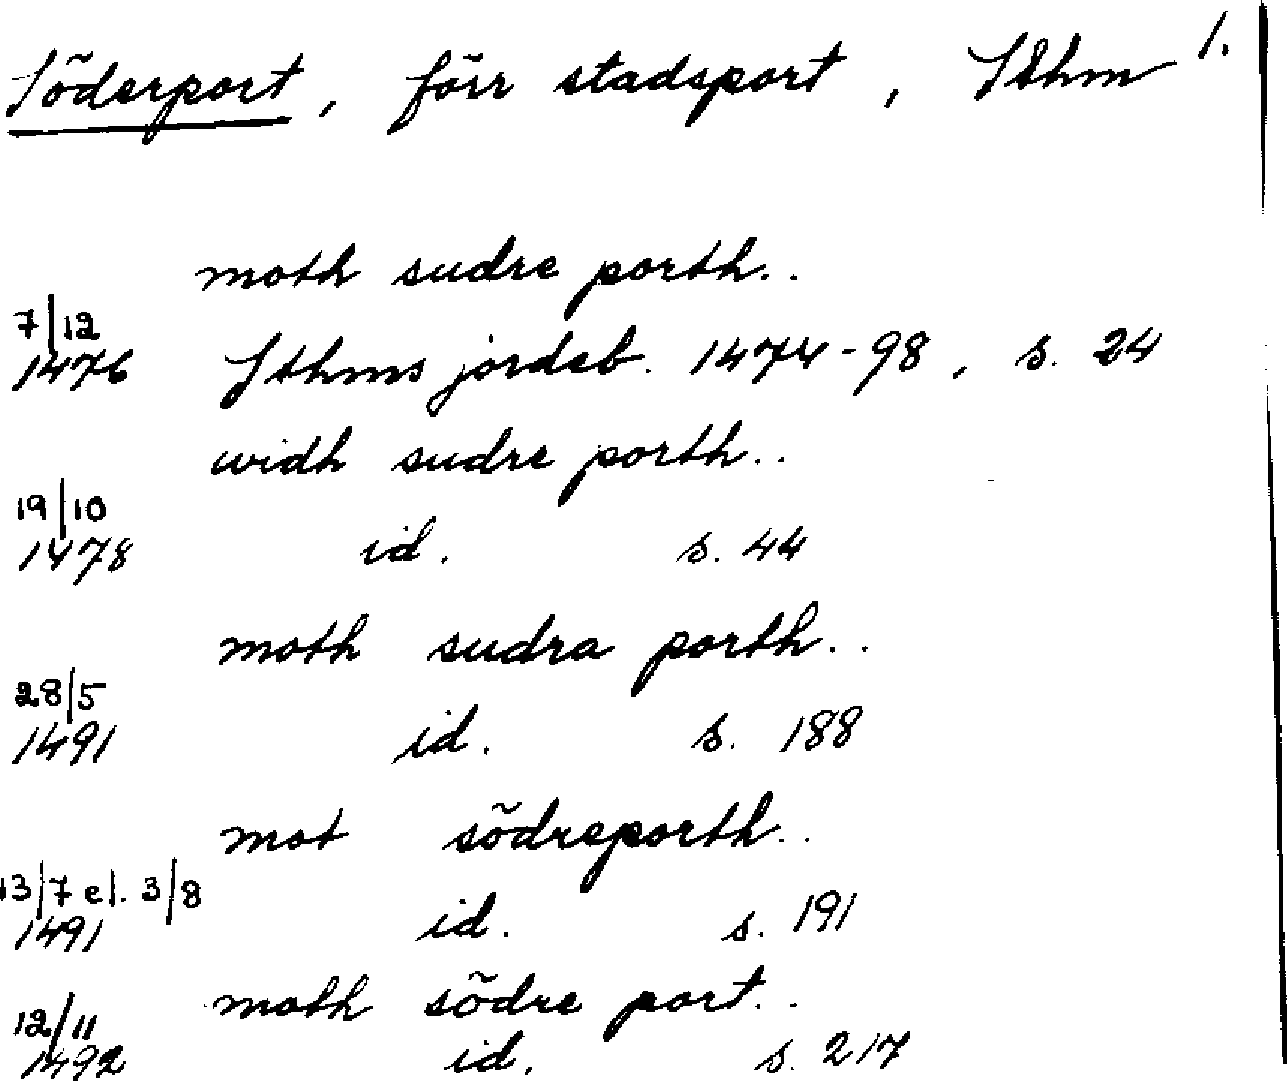 Söderport, förr stadsport, Sthm 1.
moth sudre porth..
7/12
1476 Sthms jordeb. 1474-98, s. 24
widh sudre porth..
19/10
1478 id. s. 44
moth sudra porth..
28/5
1491 id. s. 188
mot södreporth..
13/7 el. 3/8
1491 id. s. 191
moth södre port..
12/11
1492 id. s. 217